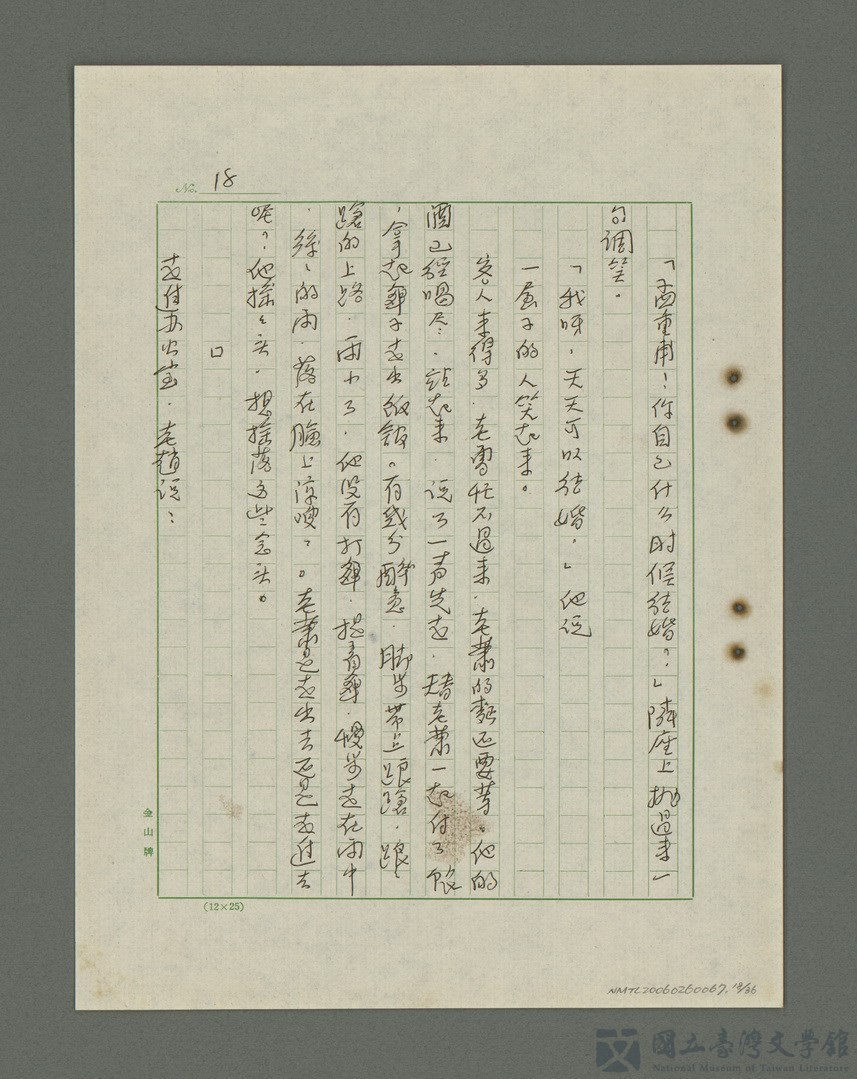 No. 18
「高重甫!你自己什么时候结婚?」隣座上拋過来一
句調笑。
「我呀,天天可以结婚。」他说
一屋子的人笑起来。
客人来得多,老雷忙不過来,老蕭的麵还要等。他的
酒已經喝尽,站起来,说了一声先走,替老蕭一起付了賬
,拿起伞子走出飯館。有幾分醉意,脚步带点踉蹌,踉
蹌的上路,雨小了,他没有打伞,提着伞,慢步走在雨中
,絲絲的雨,落在臉上涼嗖嗖。老蕭是走出去还是走進去
呢?他搖搖头,想搖落这些念头。
口
走進办公室,老趙说:
金山牌
(12×25)
NMTL20060260067, 18/36
國立臺灣文學館
National Museum of Taiwan Literature